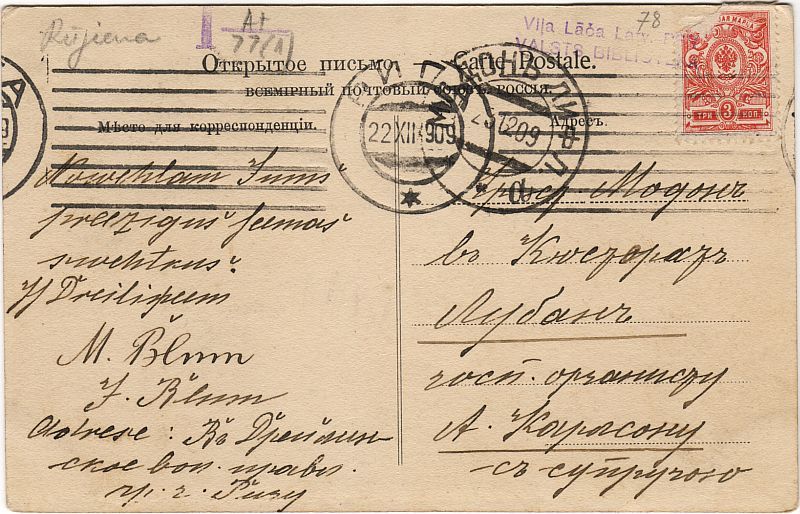 Rūjiena
A1
77(A)
78
Viļa Lāča Latv. PSR
VALSTS BIBLIOTĒKA
Открытое письмо. — Carte Postale.
ВСЕМІРНЫЙ ПОЧТОВЫЙ СОЮЗЪ. РОССІЯ.
Мѣсто для корреспонденціи.
Адресъ.
РИГА
22 XII 909
23 12 09
ПОЧТОВАЯ МАРКА
3
ТРИ КОП
Nowehlam Jums
preezigus seemas
swehtkus.
J/ Dreiliņeem
M. Blum
J. Blum
Adrese: Въ Дрейлин-
ское вол. правл.
чр. г. Ригу
чрез. Модонъ
въ
Лубанъ
госп. органисту
А. Карасону
съ супругою